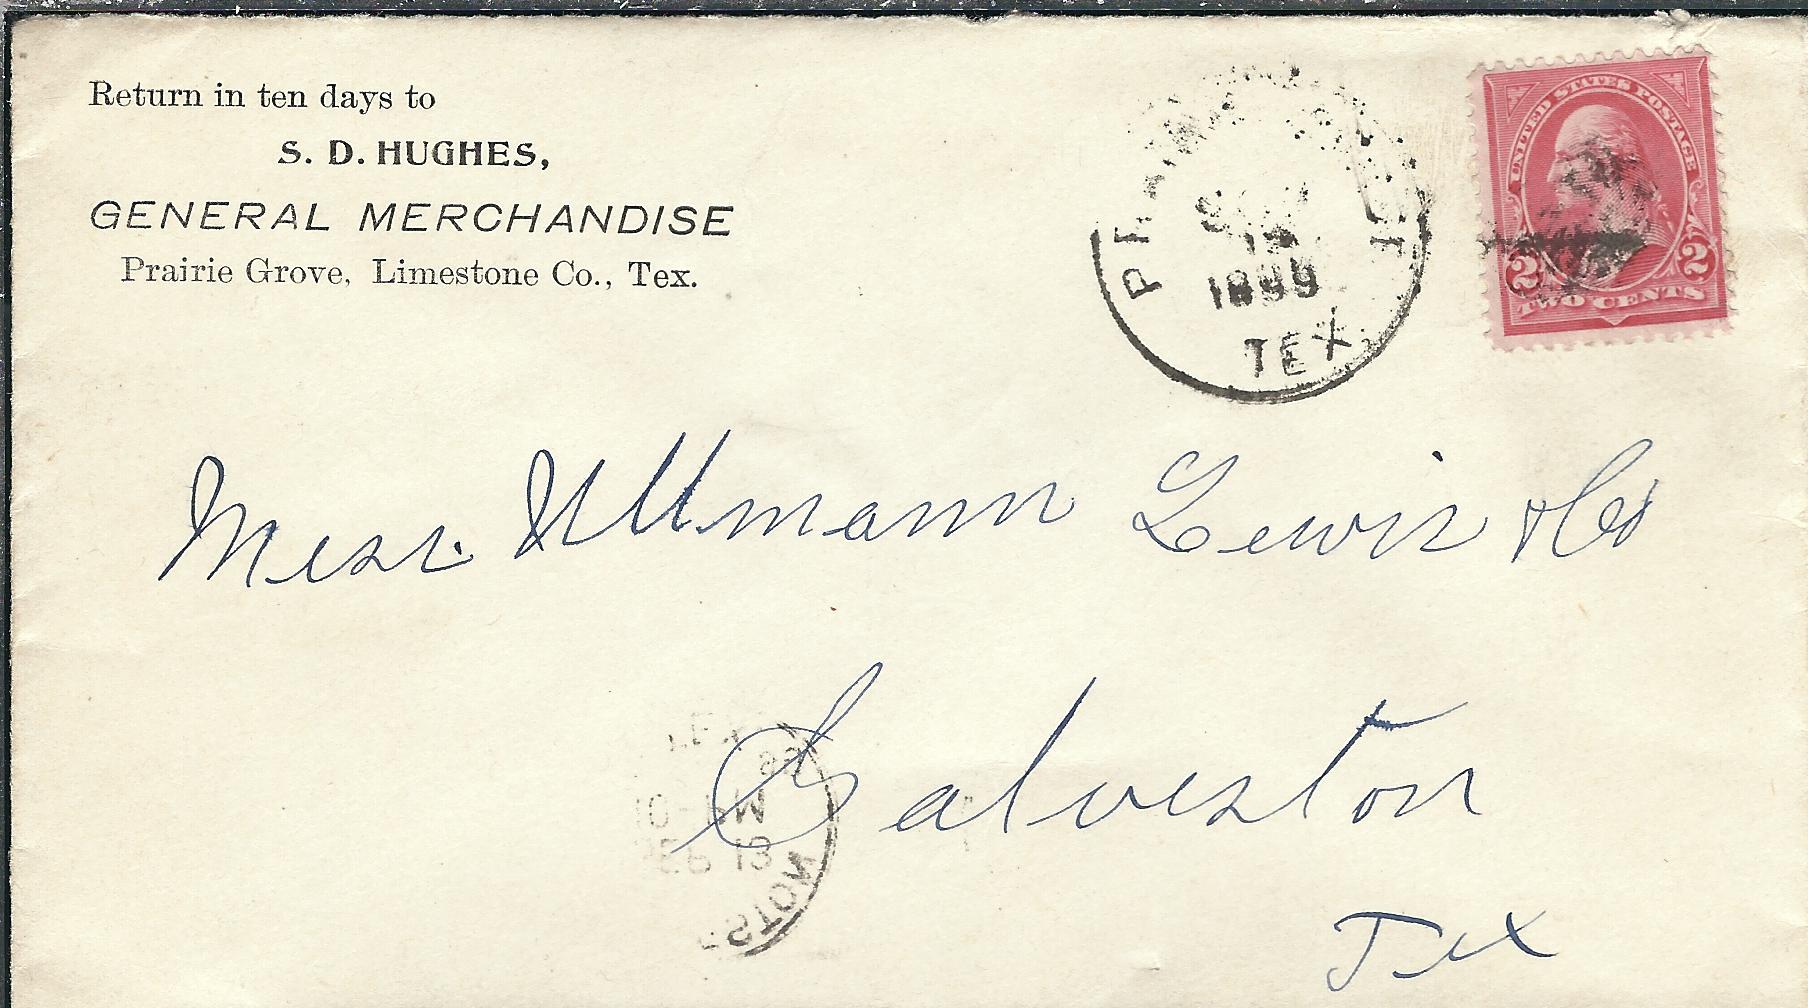 Return in ten days to
S. D. HUGHES,
GENERAL MERCHANDISE
Prairie Grove, Limestone Co., Tex.
1899
TEX
UNITED STATES POSTAGE
2 2
TWO CENTS
Mess. Ullmann Lewis & Co
Galveston
Tex
SEP 13